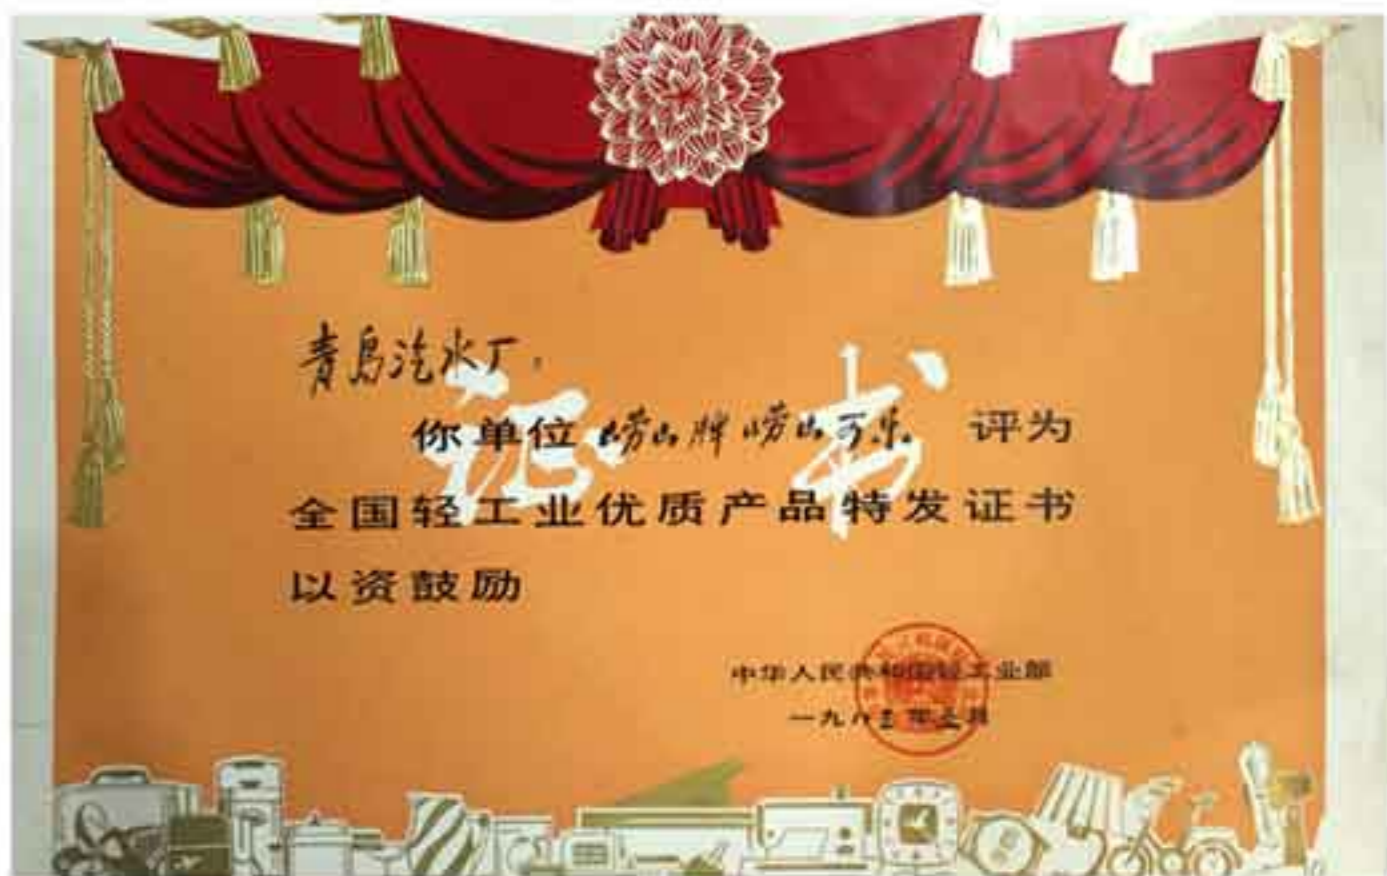 证书
青岛汽水厂：
你单位崂山牌崂山可乐 评为
全国轻工业优质产品特发证书
以资鼓励
中华人民共和国轻工业部
一九八